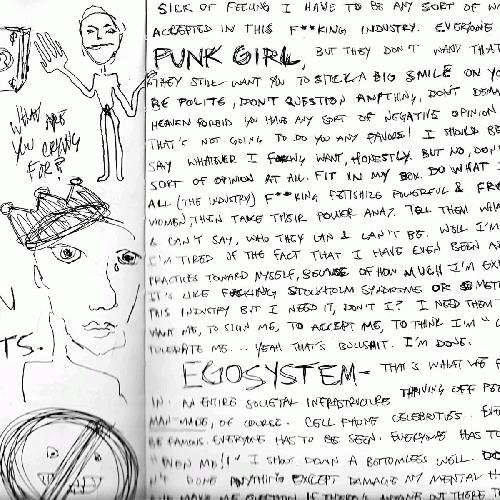 SICK OF FEELING I HAVE TO BE ANY SORT OF W
ACCEPTED IN THIS F**KING INDUSTRY. EVERYONE
PUNK GIRL, BUT THEY DON'T WANT THAT
THEY STILL WANT YOU TO STICK A BIG SMILE ON YO
BE POLITE, DON'T QUESTION ANYTHING, DON'T DEMA
HEAVEN FORBID YOU HAVE ANY SORT OF NEGATIVE OPINION
THAT'S NOT GOING TO DO YOU ANY FAVORS! I SHOULD BE
SAY WHATEVER I WANT, HONESTLY. BUT NO, DON'
SORT OF OPINION AT ALL. FIT IN MY BOX. DO WHAT I
ALL (THE INDUSTRY) F**KING FETISHIZE POWERFUL & FR
WOMEN, THEN TAKE THEIR POWER AWAY. TELL THEM WHA
& CAN'T SAY, WHO THEY CAN & CAN'T BE. WELL I'M
I'M TIRED OF THE FACT THAT I HAVE EVEN BEEN
PRACTICES TOWARD MYSELF, BECAUSE OF HOW MUCH I'M EX
IT'S LIKE FUCKING STOCKHOLM SYNDROME OR SOMET
THIS INDUSTRY BUT I NEED IT, DON'T I? I NEED THEM
WANT ME, TO SIGN ME, TO ACCEPT ME, TO THINK I'M "
TOLERATE ME... YEAH THAT'S BULLSHIT. I'M DONE.
EGOSYSTEM- THAT'S WHAT WE
IN. AN ENTIRE SOCIETAL INFRASTRUCTURE THRIVING OFF
MAN-MADE, OF COURSE. CELL PHONE CELEBRITIES.
BE FAMOUS. EVERYONE HAS TO BE SEEN. EVERYONE HAS TO
ME!!" I SHOUT DOWN A BOTTOMLESS WELL. DO
DONE ANYTHING EXCEPT DAMAGE MY MENTAL H
ME QUESTION IS THERE ANYONE OUT THERE
WHAT ARE
YOU CRYING
FOR?
TS.